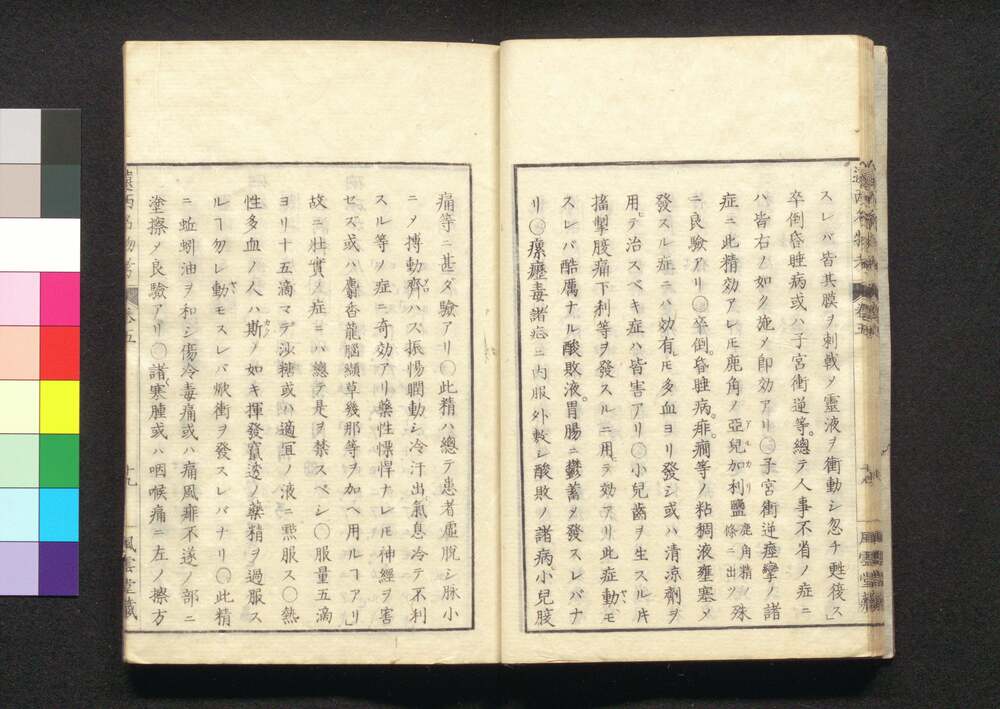 スレバ皆其膜ヲ刺戟メ靈液ヲ衝動シ忽チ甦復ス」
卒倒昏睡病或ハ子宮衝逆等總テ人事不省ノ症ニ
ハ皆右ノ如ク施メ即効アリ〇子宮衝逆痙攣ノ諸
症ニ此精効アレㄸ鹿角ノ亞兒加利鹽鹿角精ノ條ニ出ツ殊
ニ良驗アリ〇卒倒昏睡病癎等ノ粘稠液壅塞メ
發スル症ニハ効有ㄸ多血ヨリ發シ或ハ清凉劑ヲ
用テ治スベキ症ハ皆害アリ〇小兒齒ヲ生スル片
搐搦腹痛下利等ヲ發スルニ用テ効アリ此症動モ
スレバ酷厲ナル酸敗液胃腸ニ鬱蓄メ發スレバナ
リ〇瘰癧毒諸症ニ内服外敷シ酸敗ノ諸病小兒腹
痛等ニ甚ダ驗アリ〇此精ハ總テ患者虚脱シ脉小
ニメ搏動齊ハス振惕瞤動シ冷汗出氣息冷テ不利
スル等ノ症ニ奇効アリ藥性慓悍ナレㄸ神經ヲ害
セズ或ハ麝香龍腦纈草幾那等ヲ加ヘ用ルヿアリ」
故ニ壯實ノ症ニハ總テ是ヲ禁スベシ〇服量五滴
ヨリ十五滴マデ沙糖或ハ適冝ノ液ニ點服ス〇熱
性多血ノ人ハ斯ノ如キ揮發竄透ノ藥精ヲ過服ス
ルヿ勿レ動モスレバ焮衝ヲ發スレバナリ〇此精
ニ蚯蚓油ヲ和シ傷冷毒痛或ハ痛風痱不遂ノ部ニ
塗擦メ良驗アリ〇諸寒腫或ハ咽喉痛ニ左ノ擦方
遠西名物考 卷五 十九 風雲堂藏